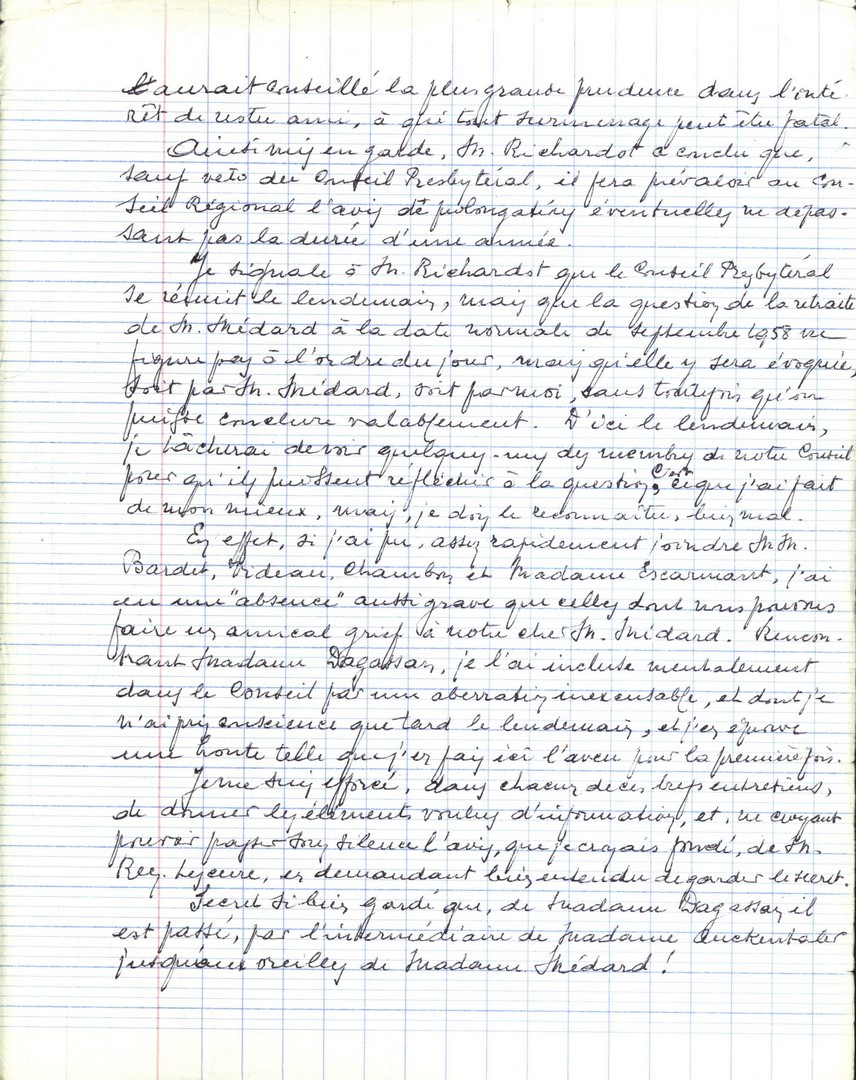 et aurait conseillé la plus grande prudence dans l'inté-
rêt de notre ami, à qui tout surmenage peut être fatal.
Ainsi mis en garde, M. Richardot a conclu que,
sauf veto du Conseil Presbytéral, il fera prévaloir au Con-
seil Régional l'avis de prolongations éventuelles ne dépas-
sant pas la durée d'une année.
Je signale à M. Richardot que le Conseil Presbytéral
se réunit le lendemain, mais que la question de la retraite
de M. Médard à la date normale de septembre 1958 ne
figure pas à l'ordre du jour, mais qu'elle y sera évoquée,
soit par M. Médard, soit par moi, sans toutefois qu'on
puisse conclure valablement. D'ici le lendemain,
je tâcherai de voir quelques-uns des membres de notre Conseil
pour qu'ils puissent réfléchir à la question, C'est ce que j'ai fait
de mon mieux, mais, je dois le reconnaître, bien mal.
En effet, si j'ai pu, assez rapidement joindre MM.
Bardet, Videau, Chambon et Madame Escarmant, j'ai
eu une "absence" aussi grave que celles dont nous pouvons
faire un amical grief à notre cher M. Médard. Rencon-
trant Madame Dagassan, je l'ai incluse mentalement
dans le Conseil par une aberration inexcusable, et dont je
n'ai pris conscience que tard le lendemain, et j'en éprouve
une honte telle que j'en fais ici l'aveu pour la première fois.
Je me suis efforcé, dans chacun de ces brefs entretiens,
de donner les éléments voulus d'information, et, ne croyant
pouvoir passer sous silence l'avis, que je croyais fondé, de M.
Rey. Lejeune, en demandant bien entendu de garder le secret.
Secret si bien gardé que, de Madame Dagassan il
est passé, par l'intermédiaire de Madame Auckenthaler
jusqu'aux oreilles de Madame Médard !